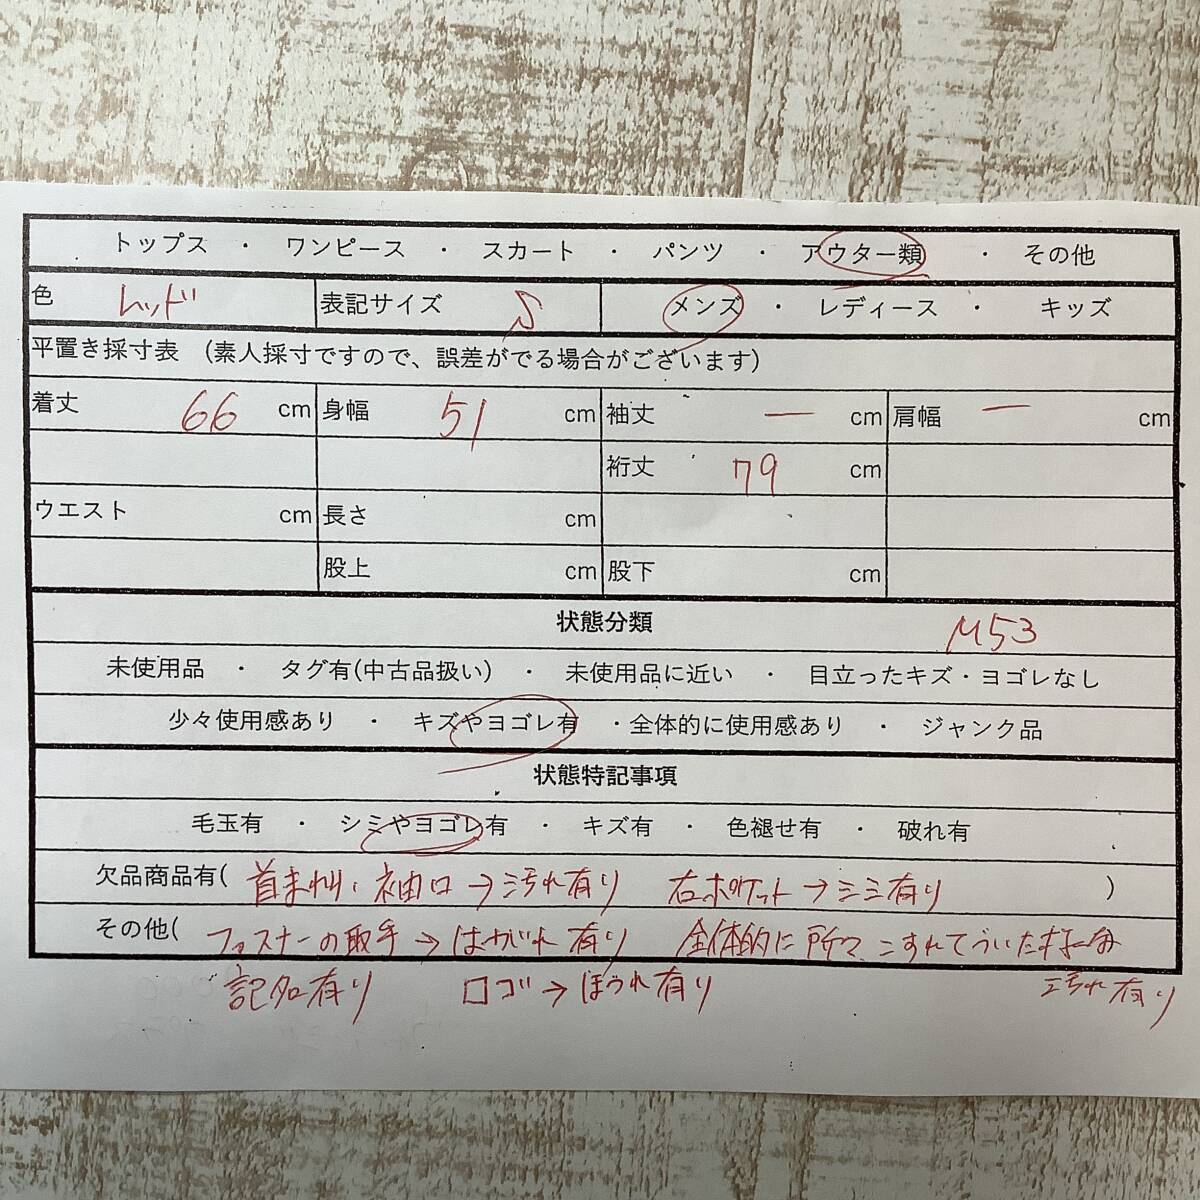 トップス ・ ワンピース ・ スカート ・ パンツ ・ アウター類 ・ その他
色 レッド 表記サイズ S メンズ ・ レディース ・ キッズ
平置き採寸表 (素人採寸ですので、誤差がでる場合がございます)
着丈 66 cm 身幅 51 cm 袖丈 ー cm 肩幅 ー cm
裄丈 79 cm
ウエスト cm 長さ cm
股上 cm 股下 cm
状態分類 M53
未使用品 ・ タグ有(中古品扱い) ・ 未使用品に近い ・ 目立ったキズ・ヨゴレなし
少々使用感あり ・ キズやヨゴレ有 ・全体的に使用感あり ・ ジャンク品
状態特記事項
毛玉有 ・ シミやヨゴレ有 ・ キズ有 ・ 色褪せ有 ・ 破れ有
欠品商品有( 首まわり、袖口→汚れ有り 右ポケット→シミ有り )
その他( ファスナーの取手→はがれ有り 全体的に所々、こすれてついた様な
記名有り ロゴ→ほつれ有り 汚れ有り